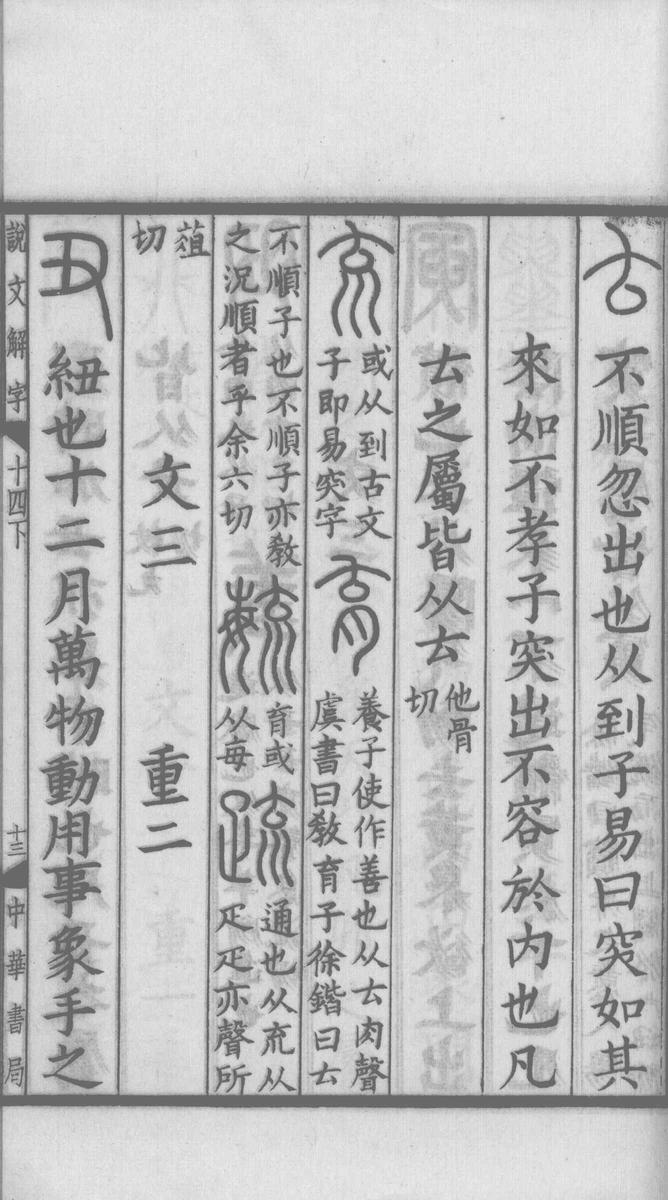 𠫓不順忽出也从到子易曰突如其
來如不孝子突出不容於内也凡
𠫓之屬皆从𠫓他骨
切
𠫬或从到古文
子即易突字育養子使作善也从𠫓肉聲
虞書曰敎育子徐鍇曰𠫓
不順子也不順子亦敎
之況順者乎余六切毓育或
从每疏通也从㐬从
疋疋亦聲所
菹
切文三 重二
丑紐也十二月萬物動用事象手之
說文解字 十四下 十三 中華書局